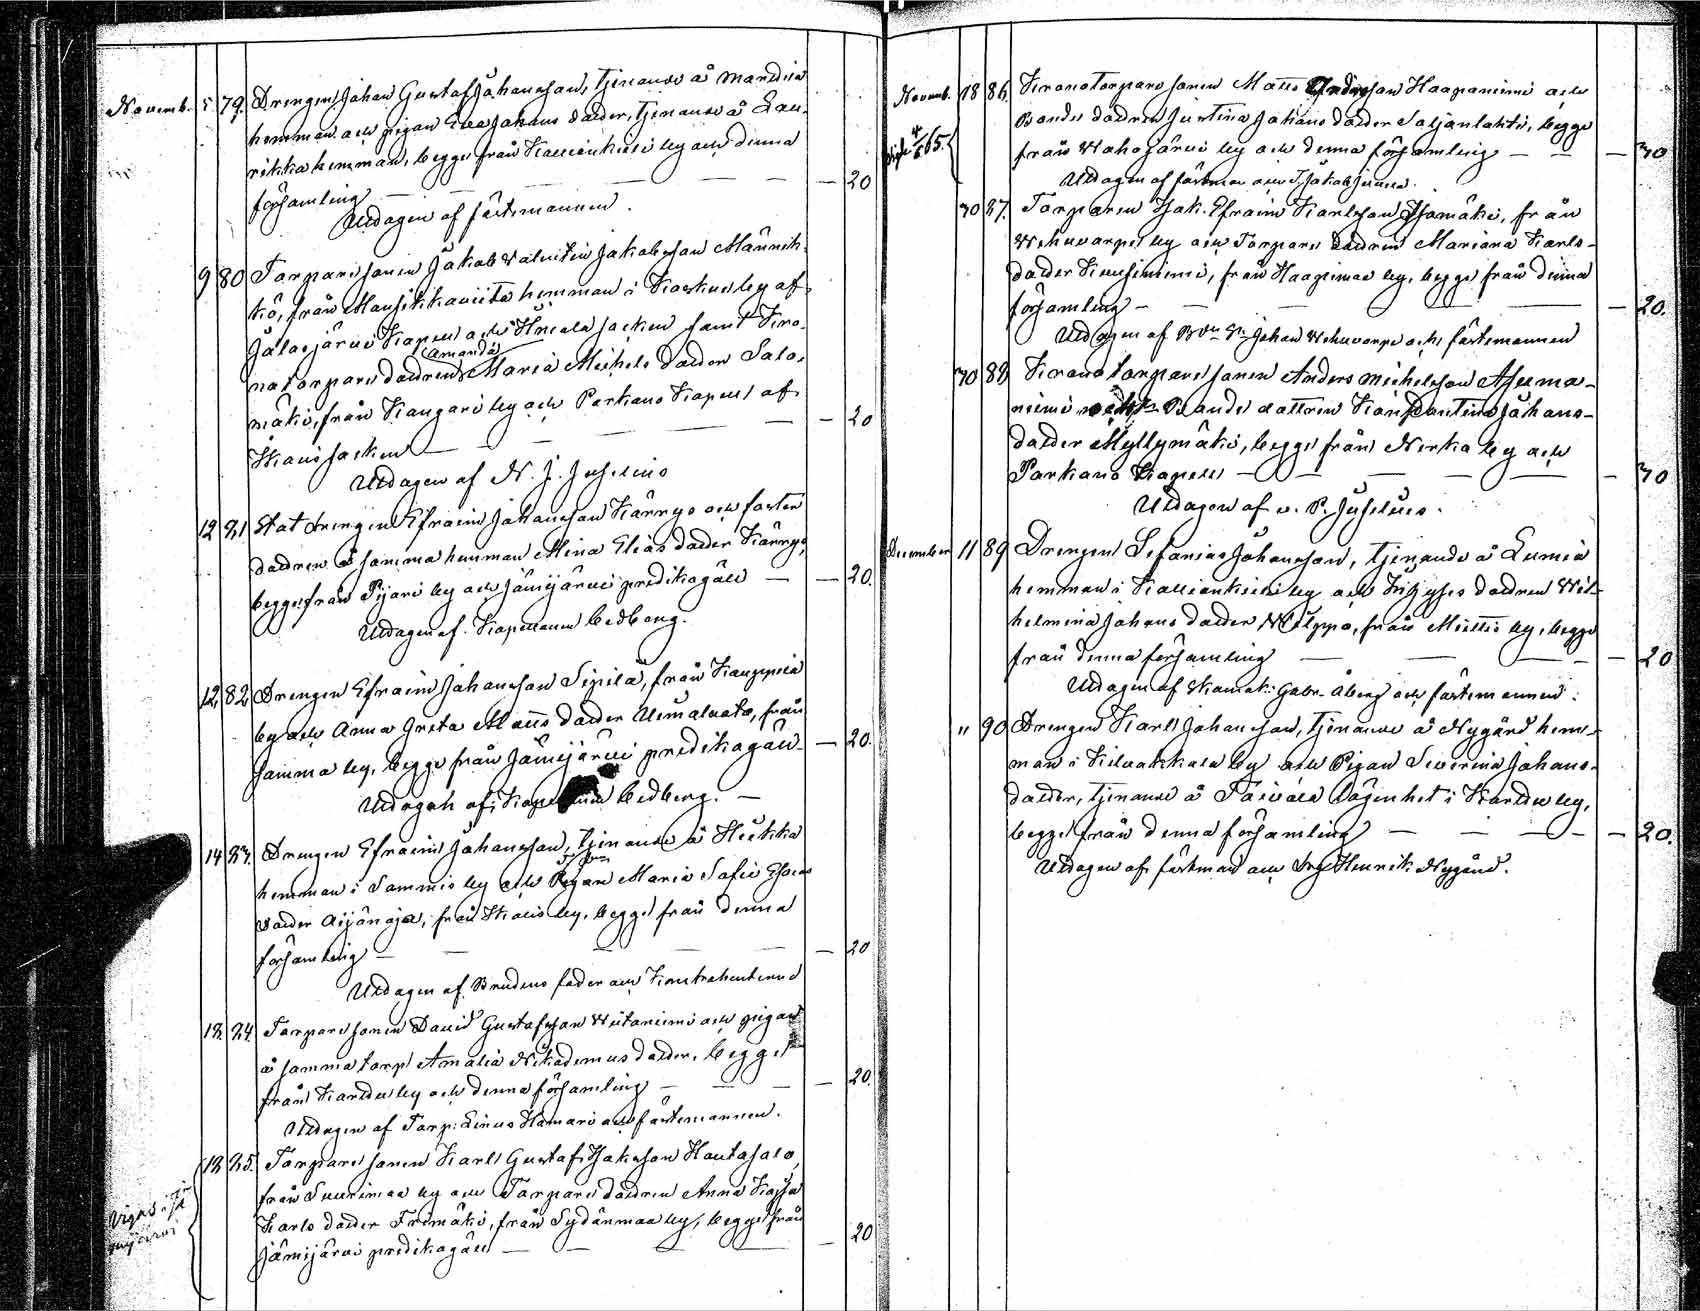 Novemb. 5 79. Drengen Johan Gustaf Johansson, tjenande å
hemman och pigan Eva Johans dotter, tjenande å Lau-
rikka hemman, begge från Kallionkieli by och denna
församling — — — — — 20
Uttagen af fästemannen.
9 80 Torpare sonen Jakob Valentin Jakobsson Männik-
kö, från Mansikkaviita hemman i Koskue by af
Jalasjärvi Kapell och Ilmola socken samt Kro-
amanda
notorpare dottren Maria Michels dotter Salo-
mäki, från Kangari by och Parkano Kapell af
Ikalis socken — — — — 20
Uttagen af N. J. Juselius
12 81 Stat drengen Efraim Johansson Kärrys och foster
dottren å samma hemman Mina Elias dotter Kärrys,
begge från Pijari by och Jämijärvi predikogäll — — 20.
Uttagen af Kapellanen Cedberg.
12. 82 Drengen Efraim Johansson Sipilä, från
by och Anna Greta Matts dotter från
samma by, begge från Jämijärvi predikogäll — — 20.
Uttagen af Kapellanen Cedberg. —
14 83. Drengen Efraim Johansson, tjenande å Heikka
hemman i Sammi by och Maria Sofia Esaias
dotter Äijänoja, från Ikalis by, begge från denna
församling — — — — 20
Uttagen af Brudens fader och Kontrahenterne
18. 84. Torpare sonen David Gustafsson Viitaniemi och pigan
å samma torp Amalia Nikodemus dotter, begge
från Kartu by och denna församling — — — 20.
Uttagen af Torp: Linus Hamari och fästemannen.
18. 85. Torpare sonen Karl Gustaf Isaksson Hautasalo,
från Suurimaa by och Torpare dottren Anna Kajsa
Karls dotter från Sydänmaa by, begge från
Jämijärvi predikogäll — — — 20
Vigd i Jä
mijärvi
Novemb. 18 86. Kronotorpare sonen Matts Andersson Haapaniemi och
Bonde dottren Justina Johans dotter Saljanlahti, begge
från Vahojärvi by och denna församling — — — 30
Vigde 4/6 65.
Uttagen af fästman och T. Jakob
30 87. Torparen Isak Efraim Karlsson Isomäki, från
Vehuvarpe by och Torpare dottren Mariana Karls-
dotter Kuusiniemi, från Haapimaa by, begge från denna
församling — — — — 20.
Uttagen af Bdn Sn Johan Vehuvarpe och fästemannen
30 88 Kronotorpare sonen Anders Michelsson Asuma-
niemi och Bonde dottren Konstantina Johans-
dotter Myllymäki, begge från Nerka by och
Parkano Kapell — — — — 30
Uttagen af v. P. Juselius.
December 11 89 Drengen Sefanias Johansson, tjenande å Lumia
hemman i Kallionkieli by och dottren Wil-
helmina Johans dotter från Miettis by, begge
från denna församling — — — 20
Uttagen af Skomak: Gabr. Åberg och fästemannen.
" 90 Drengen Karl Johansson, tjenande å Nygård hem-
man i Kilvakkala by och Pigan Severina Johans-
dotter, tjenande å Toivola lägenhet i Kartu by,
begge från denna församling — — — 20.
Uttagen af fästman och Henrik Nygård.